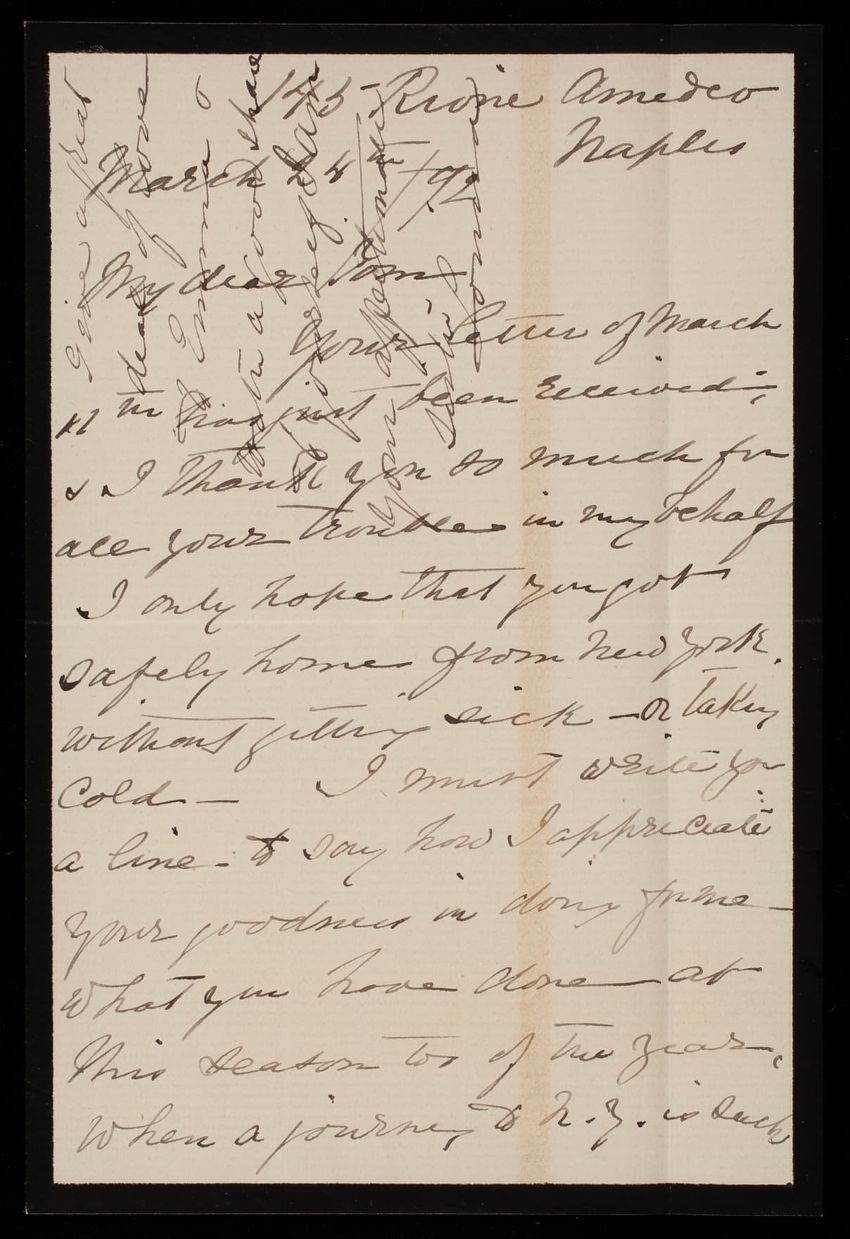 145 Rione Amedeo
Naples
March 24th /92
My dear Tom
Your letter of March
11th has just been received,
& I thank you so much for
all your trouble in my behalf
I only hope that you got
safely home from New York,
without getting sick - or taking
Cold - I must write you
a line - to say how I appreciate
your goodness in doing for me -
what you have done at
this season too of the year,
when a journey to N.Y. is such
Give a great
deal of love
to Emma &
with a good share
to yourself I am
Your affectionate